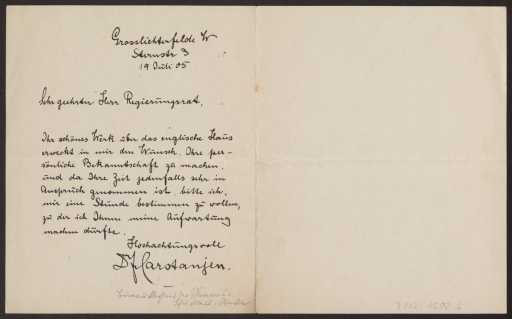 Grosslichterfelde W
Sternstr 3
19 Juli 05
Sehr geehrter Herr Regierungsrat,
Ihr schönes Werk über das englische Haus
erweckt in mir den Wunsch, Ihre per-
sönliche Bekanntschaft zu machen
und da Ihre Zeit jedenfalls sehr in
Anspruch genommen ist, bitte ich,
mir eine Stunde bestimmen zu wollen,
zu der ich Ihnen meine Aufwartung
machen dürfte.
Hochachtungsvoll
Dr F Carstanjen.